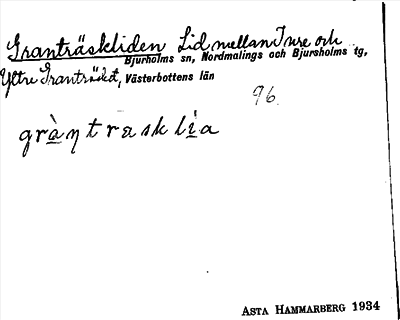 Granträskliden Lid mellan Inre och
Bjurholms sn, Nordmalings och Bjursholms tg,
Yttre Granträsket, Västerbottens län
96.
gràntrask lìa
ASTA HAMMARBERG 1934